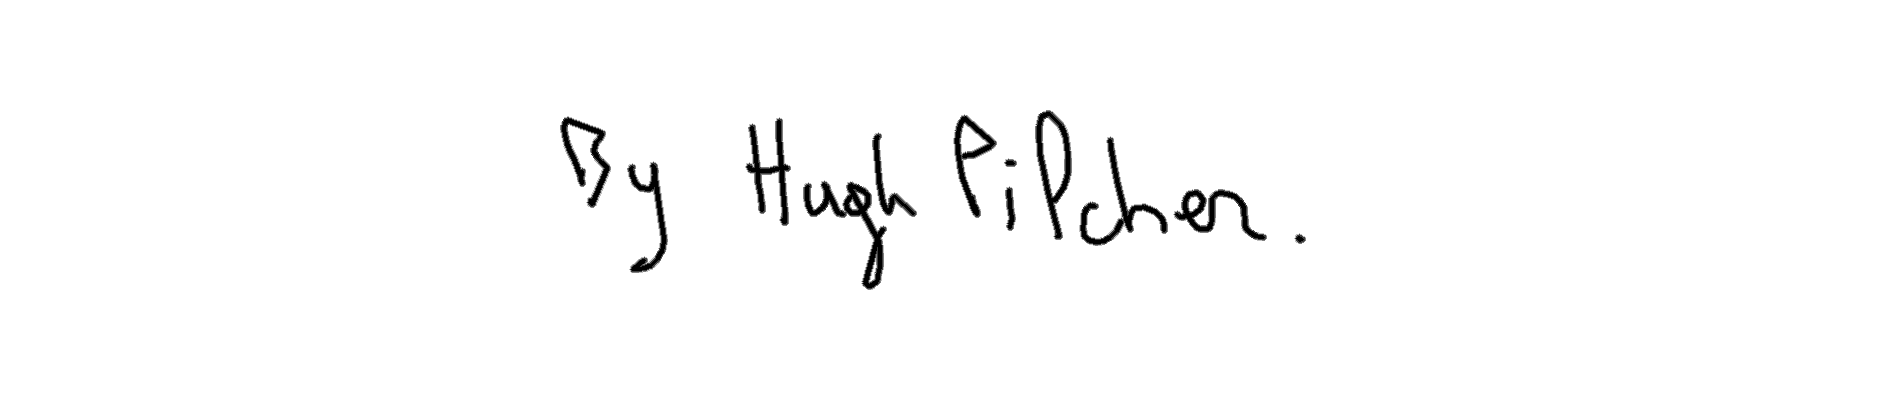 By Hugh Pilcher.